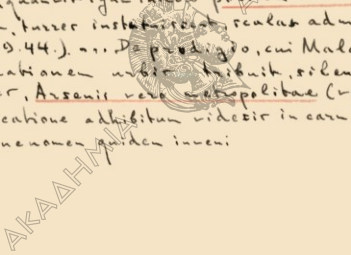 , turres instituissent, scalas adm
9.44.). ... De prodigio, cui Mala
ationem urbis tribuit, silen
r, Arsenii vero metropolitae (v
catione adhibitum videsis in carm
nomen quidem inveni
ΑΚΑΔΗΜΙΑ